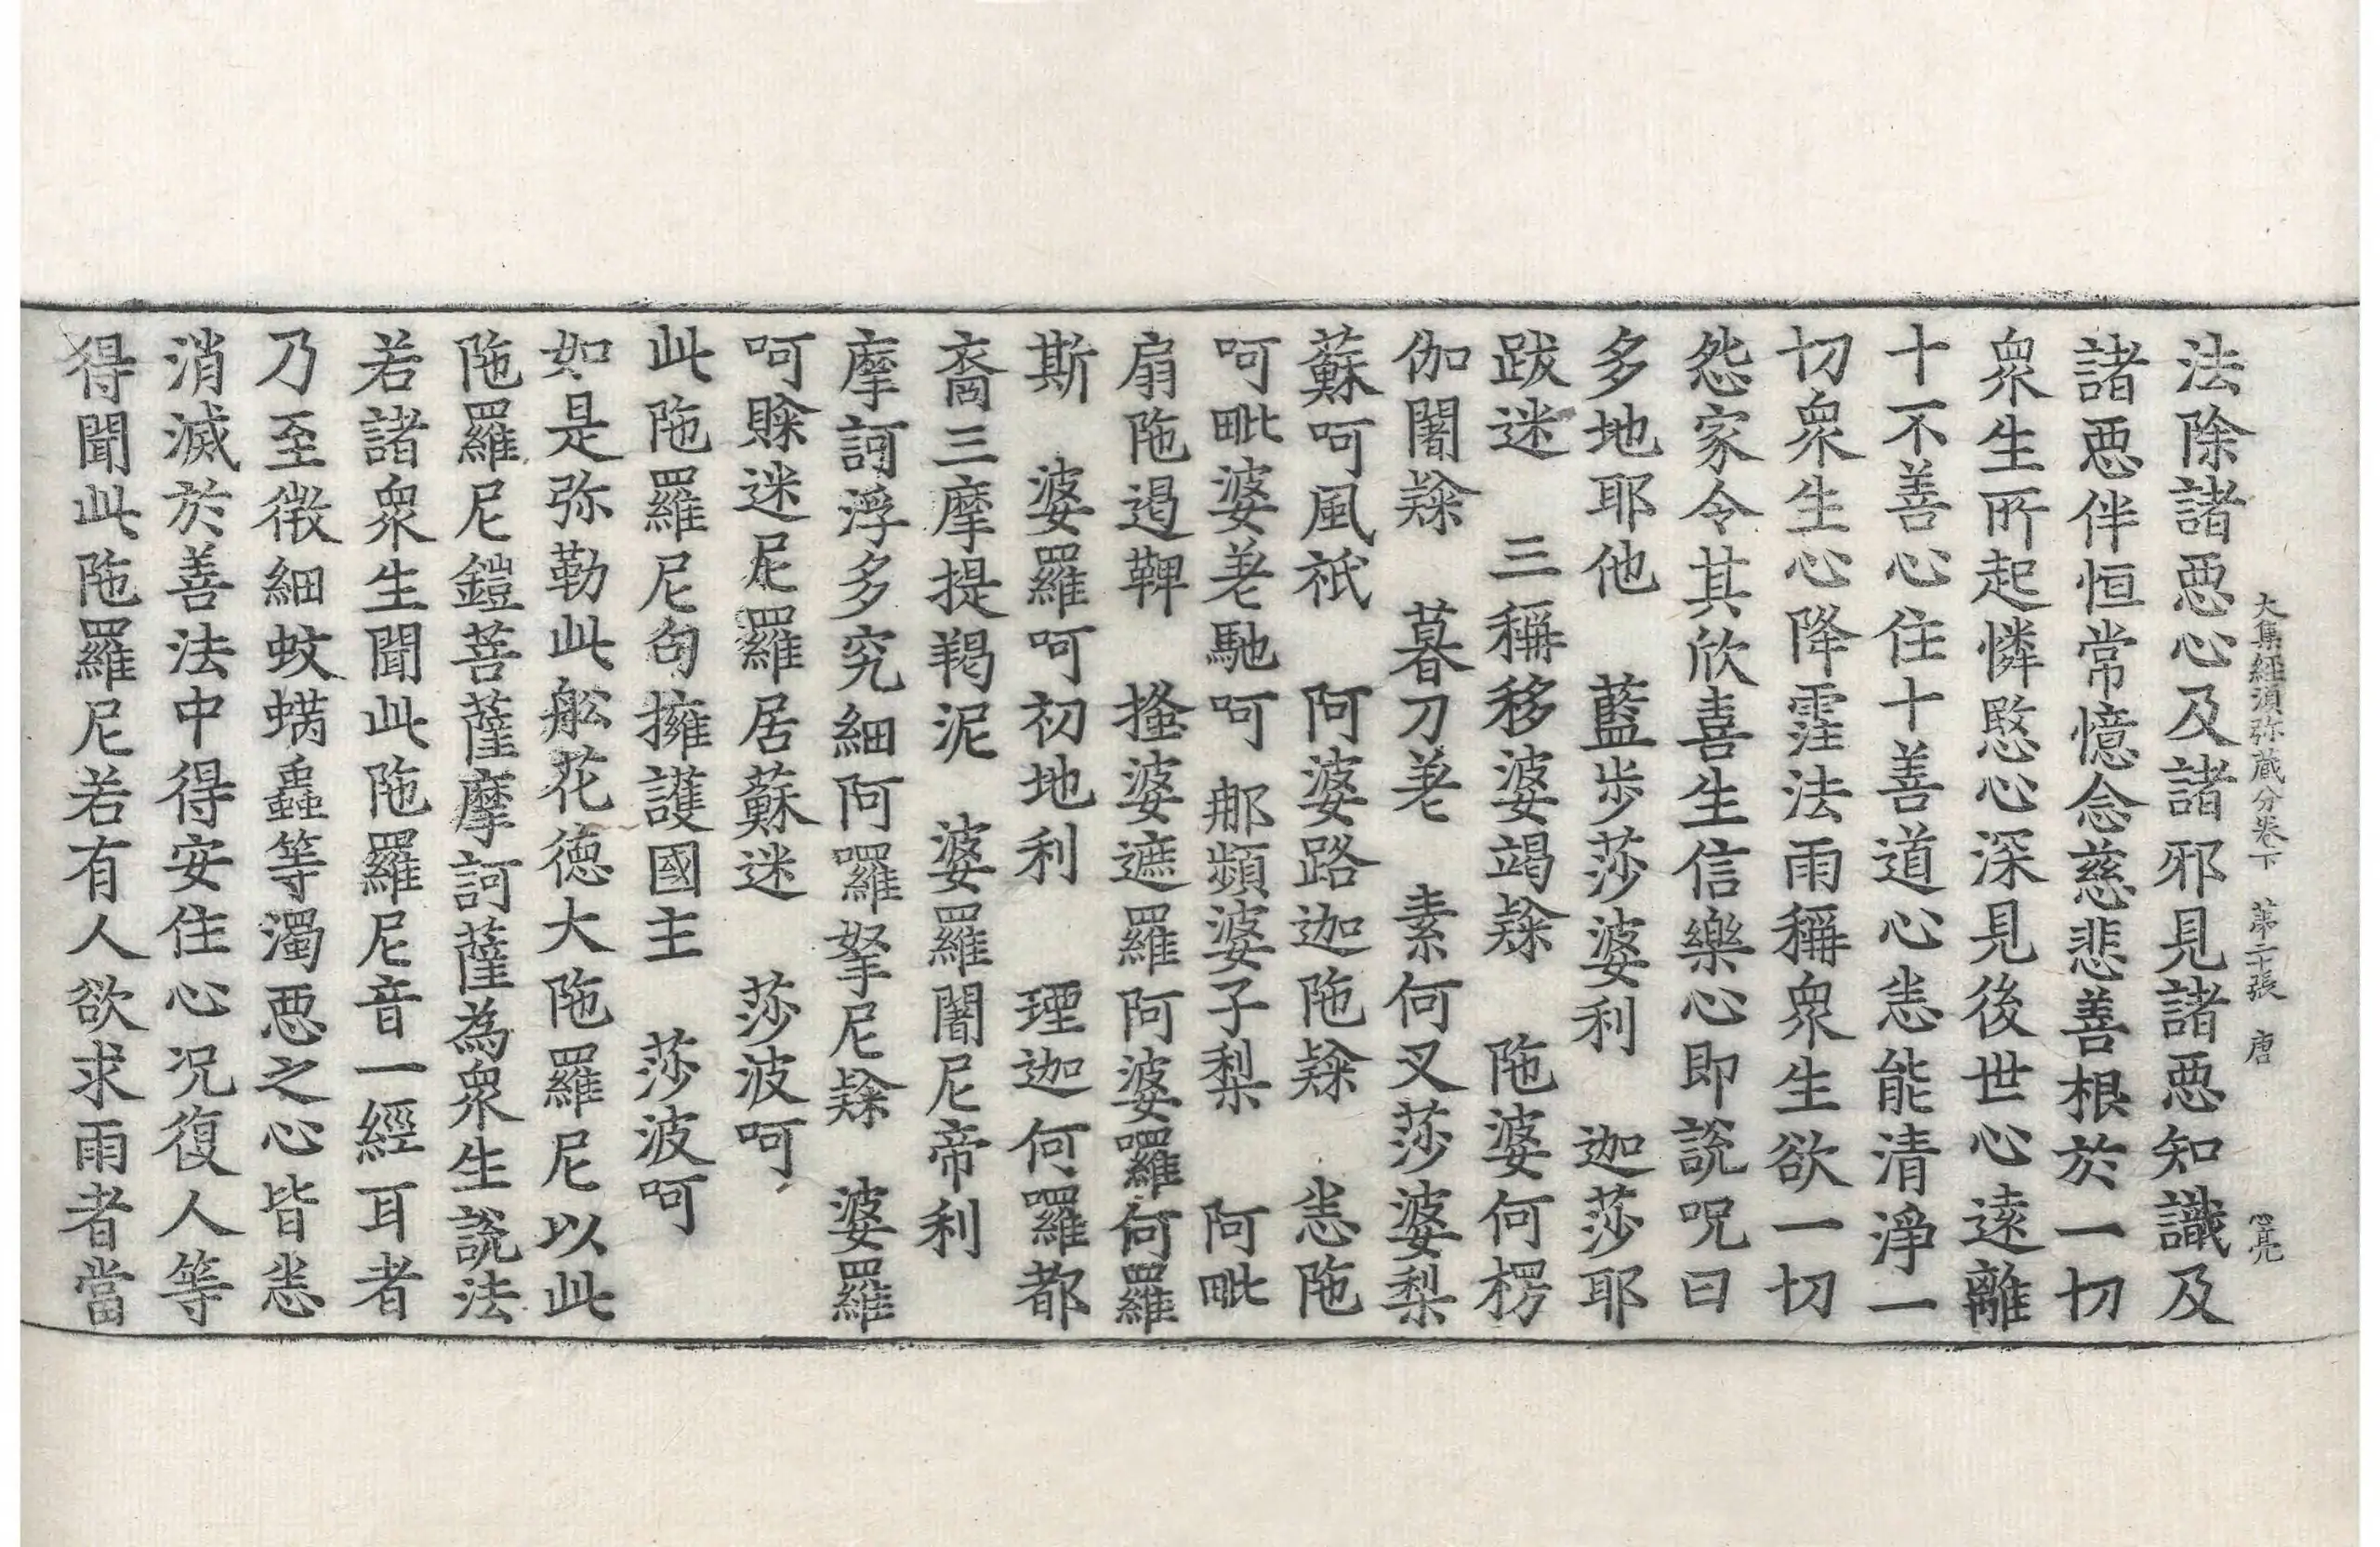 大集經須弥藏分卷下 第二十張 唐 亮
法除諸惡心及諸邪見諸惡知識及
諸惡伴恒常憶念慈悲善根於一切
衆生所起憐愍心深見後世心遠離
十不善心住十善道心悉能清淨一
切衆生心降霔法雨稱衆生欲一切
怨家令其欣喜生信樂心即說呪曰
多地耶他 藍步莎婆利 迦莎耶
跋迷 三稱移婆竭㘑 陁婆何楞
伽闍㘑 暮刀荖 素何叉莎婆梨
蘇呵風祇 阿婆路迦陁㘑 恙陁
呵毗婆荖馳呵 那頻婆子梨 阿毗
扇陁遏鞞 搔婆遮羅阿婆囉何羅
斯 婆羅呵初地利 瑿迦何囉都
裔三摩提羯泥 婆羅闍尼帝利
摩訶浮多究細阿囉拏尼㘑 婆羅
呵賒迷尼羅居蘇迷 莎波呵
此陁羅尼句擁護國主 莎波呵
如是弥勒此舩花德大陁羅尼以此
陁羅尼鎧菩薩摩訶薩為衆生說法
若諸衆生聞此陁羅尼音一經耳者
乃至微細蚊蟎蟲等濁惡之心皆悉
消滅於善法中得安住心況復人等
得聞此陁羅尼若有人欲求雨者當